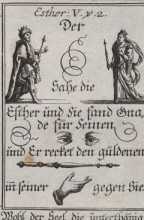 Esther. V. ỹ. 2.
Der
Sahe die
Esther und Sie fand Gna
de für Seinen,
und Er recket den güldenen
in seiner gegen Sie.
Wohl der Seel die unterthänig